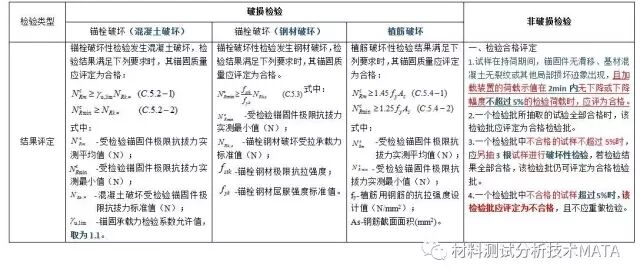 检验类型
破损检验
非破损检验
锚栓破坏（混凝土破坏）
锚栓破坏（钢材破坏）
植筋破坏
结果评定
锚栓破坏性检验发生混凝土破坏，检
验结果满足下列要求时，其锚固质量
应评定为合格。
N^c_{Rm}≥γ_{u,lim}N_{Rk,*} (C.5.2-1)
N^c_{Rmin}≥N_{Rk,*} (C.5.2-2)
式中：
N^c_{Rm}-受检验锚固件极限抗拔力
实测平均值（N）；
N^c_{Rmin}-受检验锚固件极限抗拔力
实测最小值（N）；
N_{Rk,*}-混凝土破坏受检验锚固件极
限抗拔力标准值（N）；
γ_{u,lim}-锚固承载力检验系数允许值，
取为 1.1。
锚栓破坏性检验发生钢材破坏，检
验结果满足下列要求时，其锚固质
量应评定为合格。
(C.5.3) 式中：
N^c_{Rmin}-受检验锚固件极限抗拔力
实测最小值（N）；
N_{Rk,s}-锚栓钢材破坏受拉承载力
标准值（N）；
f_{stk}-锚栓钢材极限抗拉强度；
f_{yk}-锚栓钢材屈服强度标准值。
植筋破坏性检验结果满足下
列要求时，其锚固质量应评定
为合格。
≥1.45f_yA_s (C.5.4-1)
≥1.25f_yA_s (C.5.4-2)
式中：
-受检验锚固件极限抗
拔力实测平均值（N）；
-受检验锚固件极限抗
拔力实测最小值（N）；
f_y-植筋用钢筋的抗拉强度设
计值（N/mm²）；
As-钢筋截面面积(mm²)。
一、检验合格评定
1.试样在持荷期间，锚固件无滑移、基材混
凝土无裂纹或其他局部损坏迹象出现，且加
载装置的荷载示值在 2min 内无下降或下降
幅度不超过 5%的检验荷载时，应评为合格。
2.一个检验批所抽取的试验全部合格时，该
检验批应评定为合格检验批。
3.一个检验批中不合格的试样不超过 5%时，
应另抽 3 根试样进行破坏性检验，若检验结
果全部合格，该检验批仍可评定为合格检验
批。
4.一个检验批中不合格的试样超过 5%时，该
检验批应评定为不合格，且不应重做检验。
材料测试分析技术MATA